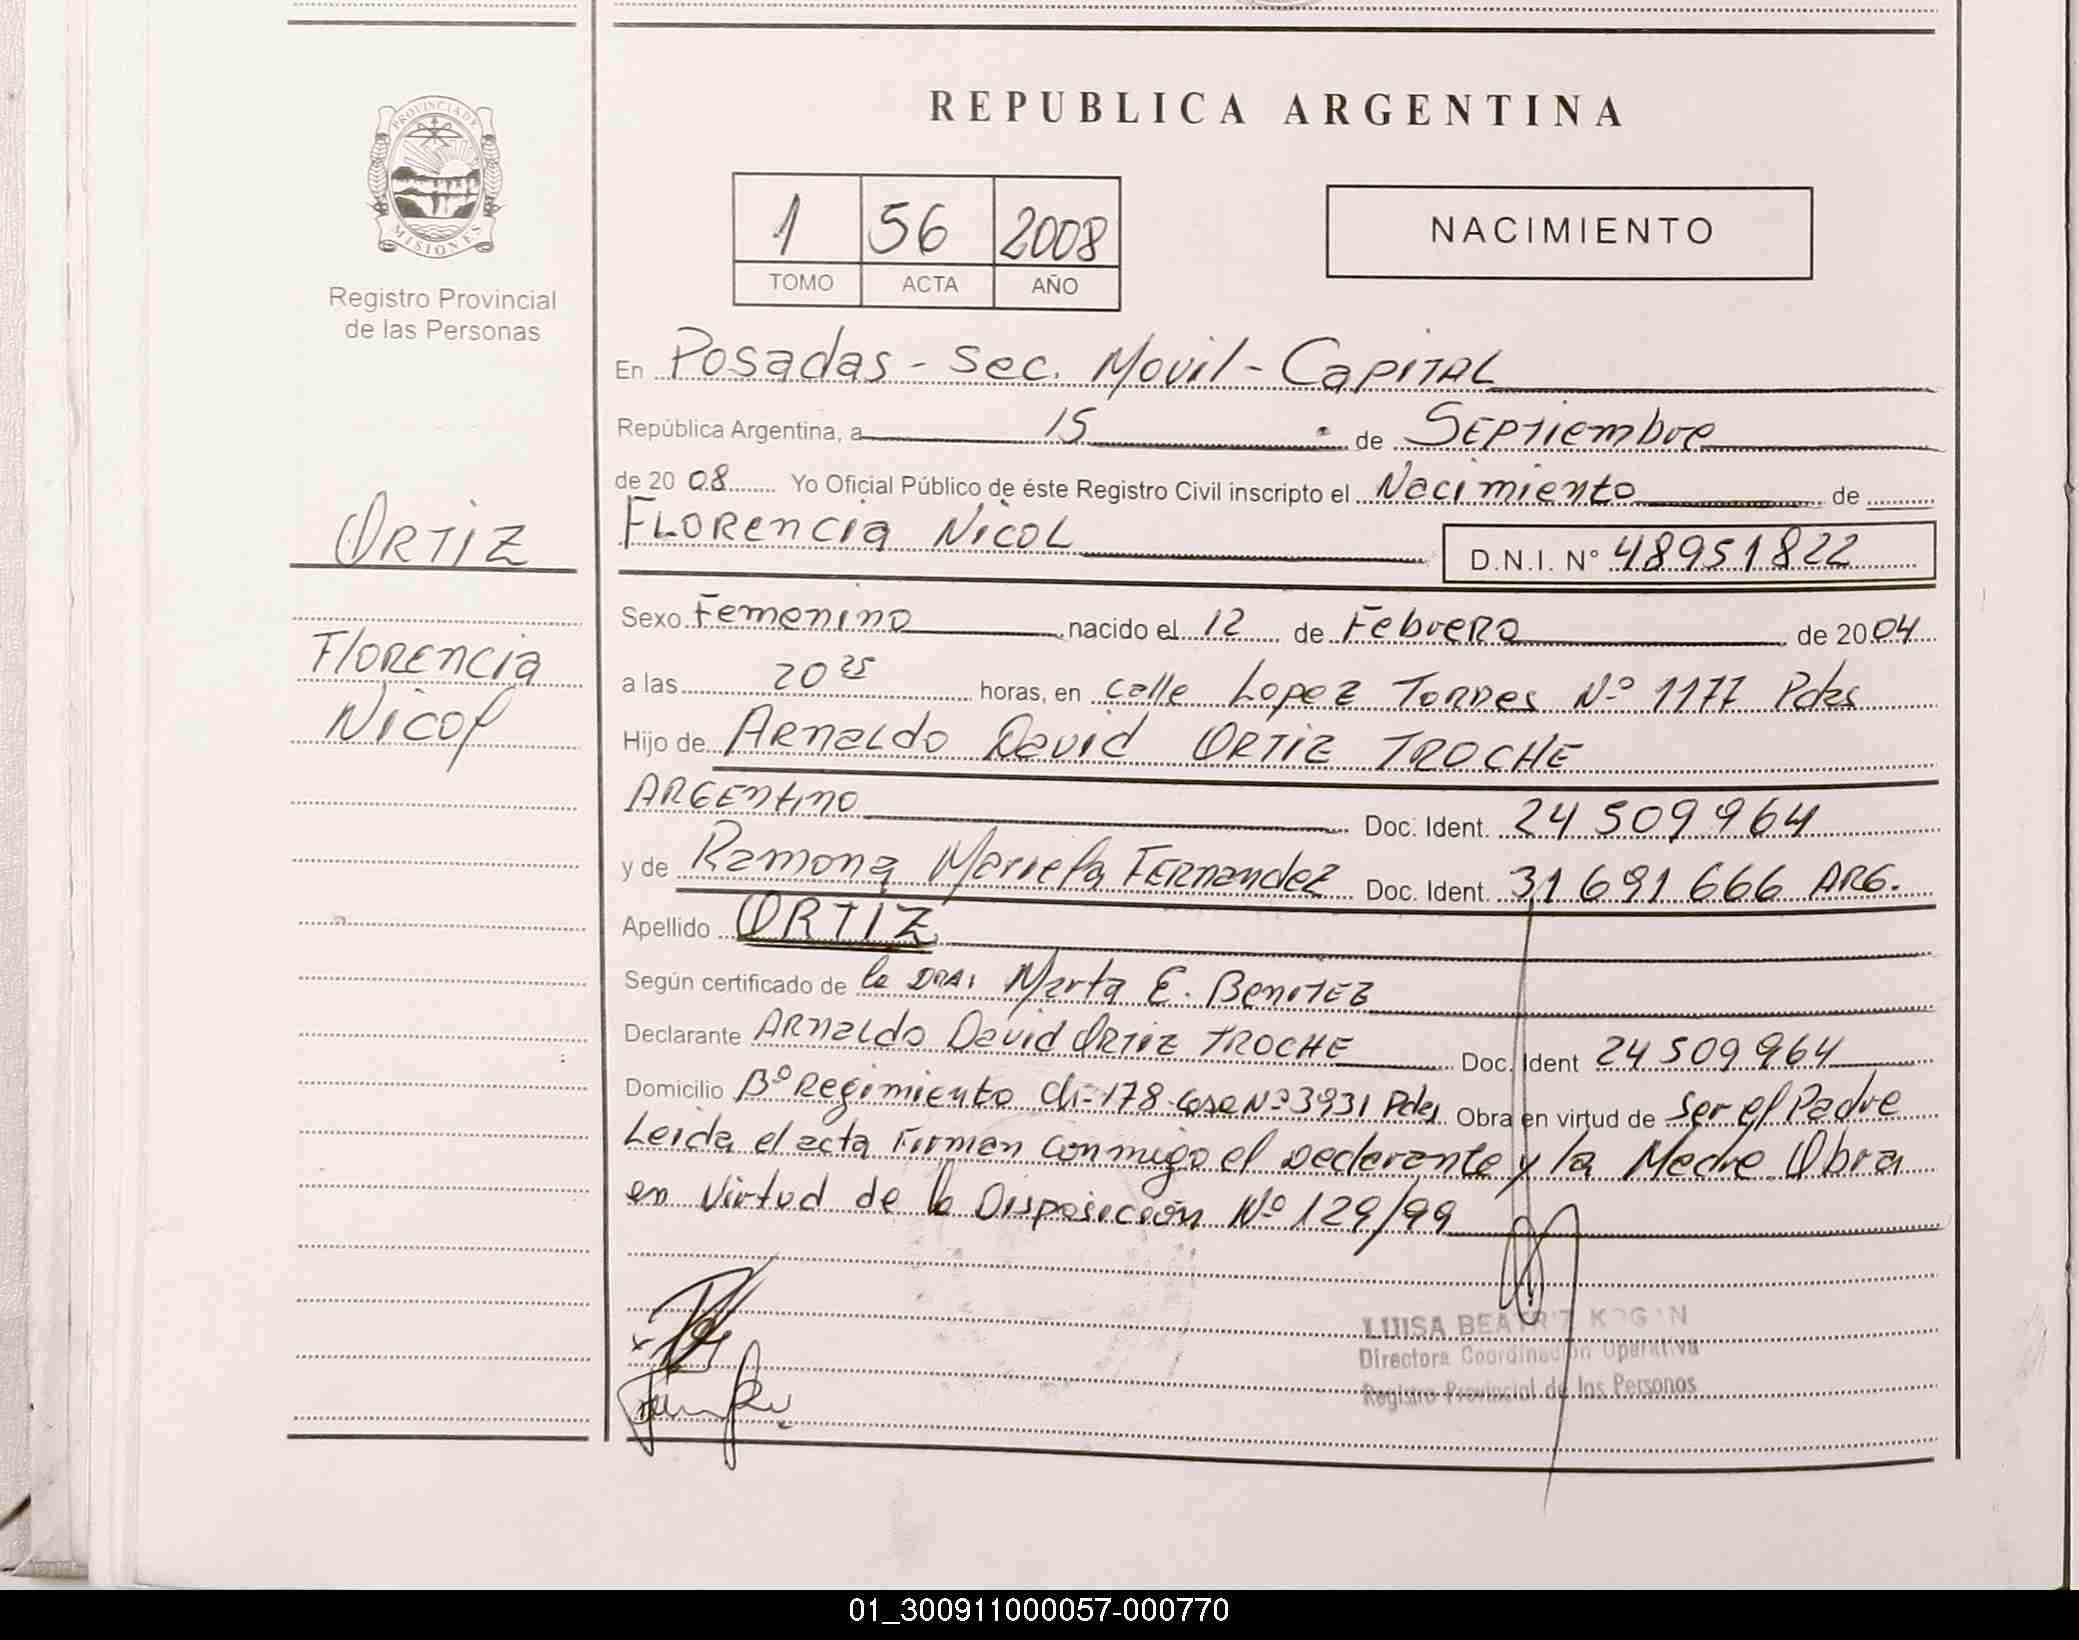 REPUBLICA ARGENTINA
PROVINCIA DE
MISIONES
Registro Provincial
de las Personas
1 56 2008
TOMO ACTA AÑO
NACIMIENTO
ORTIZ
Florencia
Nicol
En Posadas - Sec. Movil - Capital
República Argentina, a 15 de Septiembre
de 2008 Yo Oficial Público de éste Registro Civil inscripto el Nacimiento de
Florencia Nicol D.N.I. N° 48951822
Sexo Femenino nacido el 12 de Febrero de 2004
a las 20 25 horas, en calle Lopez Torres Nº 1177 Pdas
Hijo de Arnaldo David ORTIZ TROCHE
Argentino Doc. Ident. 24 509 964
y de Ramona Mariela FERNANDEZ Doc. Ident. 31 691 666 ARG.
Apellido ORTIZ
Según certificado de la DRA. Marta E. Benitez
Declarante Arnaldo David Ortiz TROCHE Doc. Ident 24 509 964
Domicilio Bº Regimiento Ch-178-Casa Nº 3931 Pdas Obra en virtud de Ser el Padre
Leida el acta Firman conmigo el Declarante y la Madre. Obra
en Virtud de la Disposición Nº 129/99
LUISA BEATRIZ KOGAN
Directora Coordinación Operativa
Registro Provincial de las Personas
01_300911000057-000770